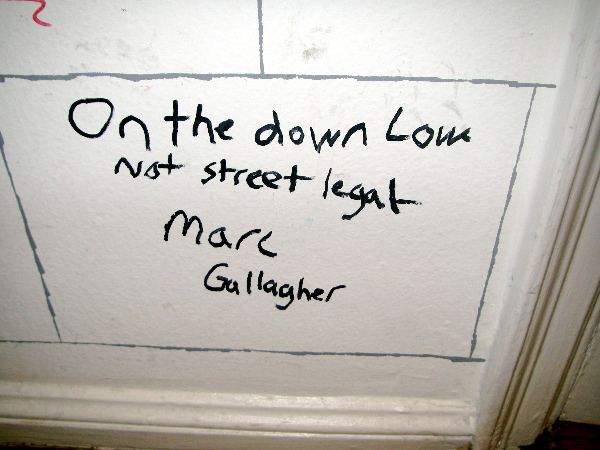 On the down Low
Not street legal
Marc
Gallagher